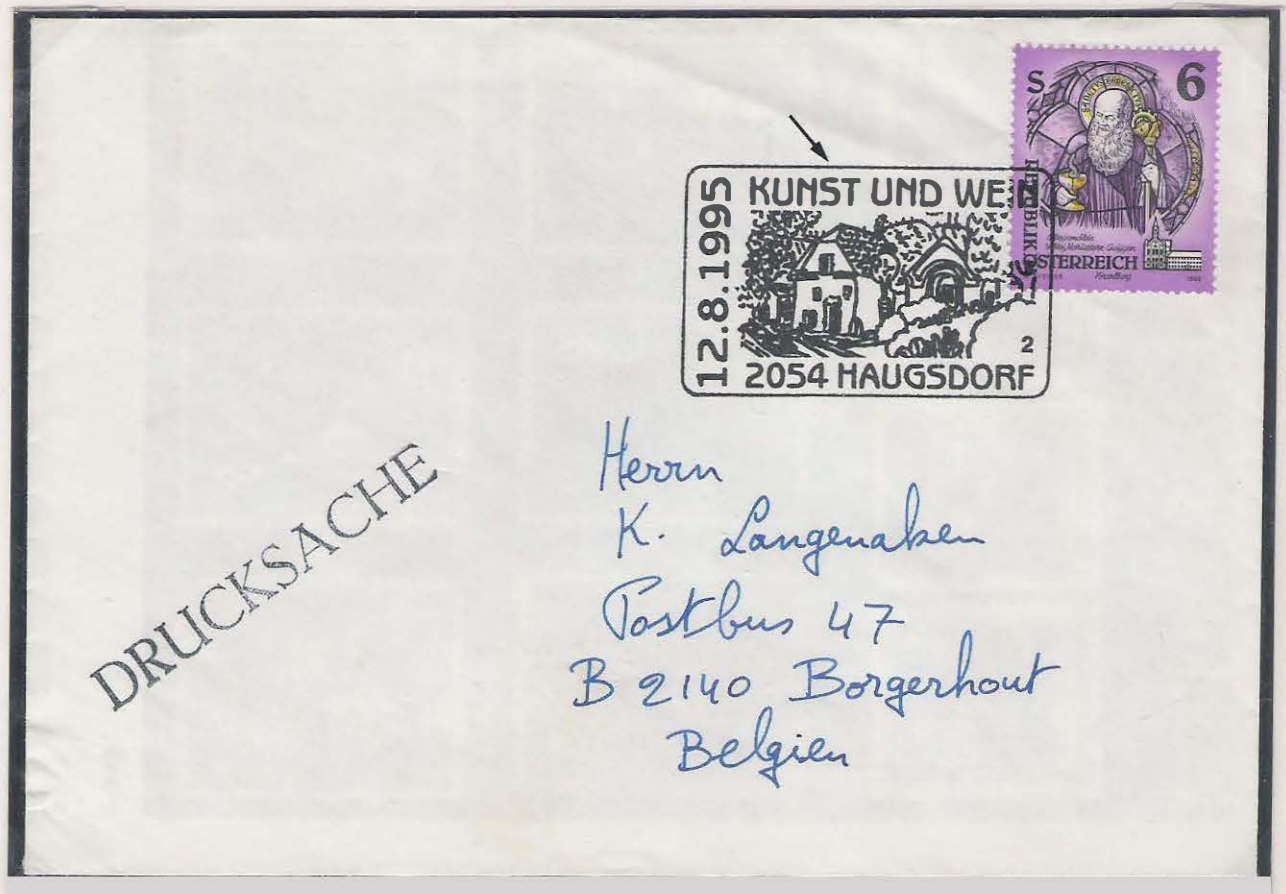 S 6
REPUBLIK
ÖSTERREICH
12.8.1995
KUNST UND WEIN
2
2054 HAUGSDORF
DRUCKSACHE
Herrn
K. Langenaken
Postbus 47
B 2140 Borgerhout
Belgien